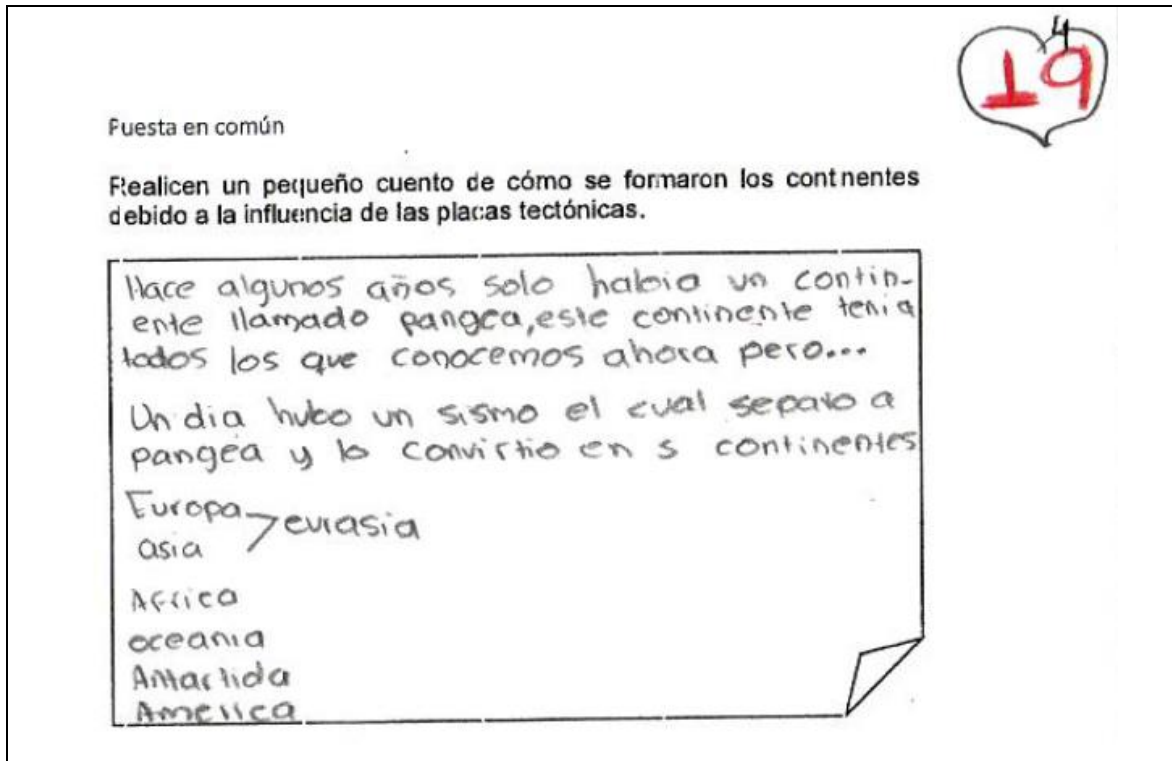 4
19
Puesta en común
Realicen un pequeño cuento de cómo se formaron los continentes
debido a la influencia de las placas tectónicas.
Hace algunos años solo habia un contin-
ente llamado pangea, este continente tenia
todos los que conocemos ahora pero...
Un dia hubo un sismo el cual separo a
pangea y lo convirtio en 5 continentes
Europa
asia > eurasia
Africa
oceania
Antartida
America